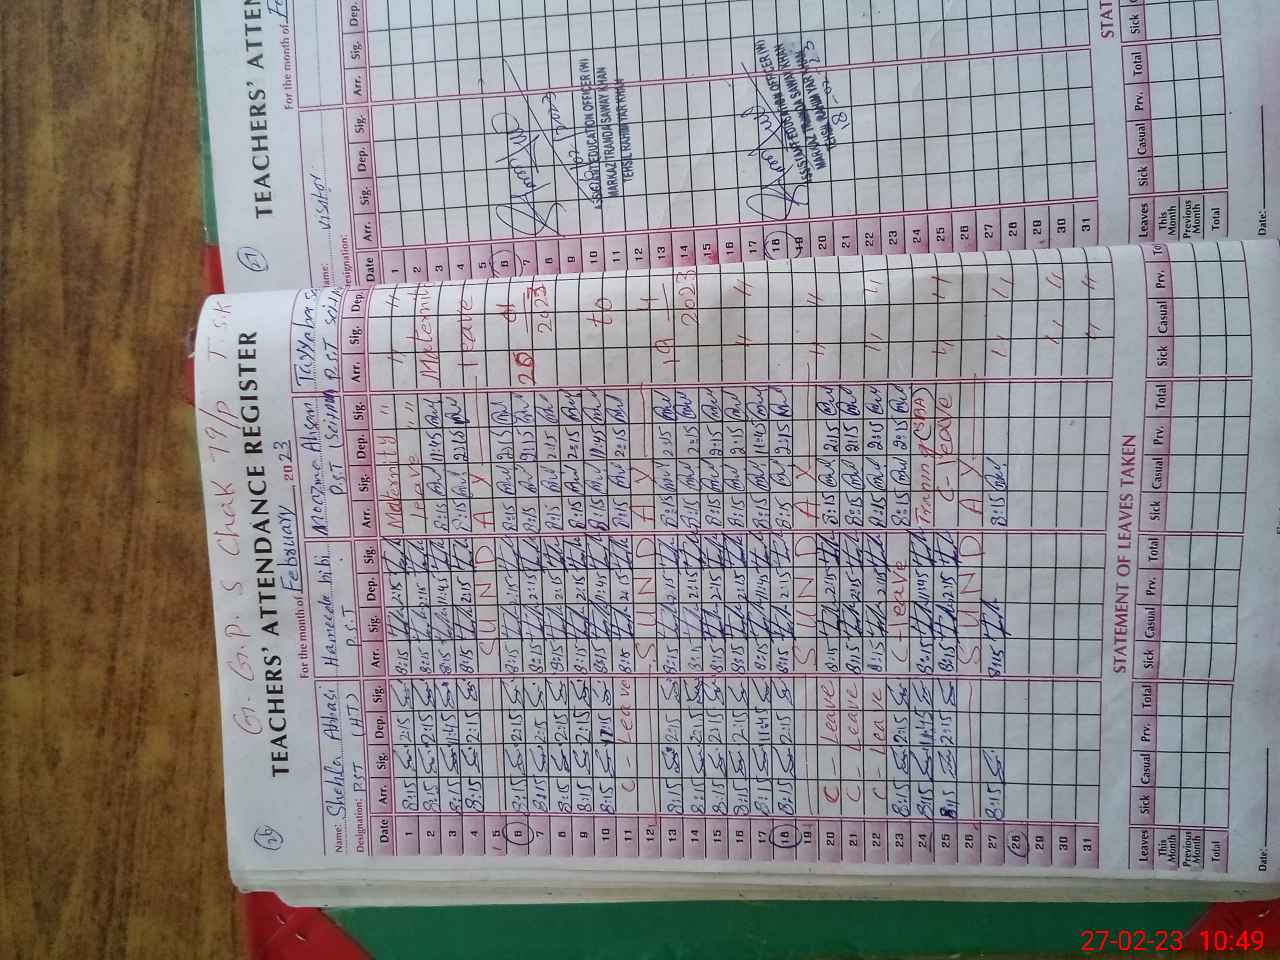 G. G. P. S Chak 79/P T.S.K
26
TEACHERS' ATTENDANCE REGISTER
For the month of February 2023
Name: Shehla Abbasi Hameeda bibi Moazma Ahsan
Designation: P.S.T (HT) P.S.T P.S.T (Science) P.S.T
Date Arr. Sig. Dep. Sig. Arr. Sig. Dep. Sig. Arr. Sig. Dep. Sig. Arr. Sig. Dep.
1 8:15 2:15 8:15 2:15 Maternity " " "
2 8:15 2:15 8:15 2:15 Leave " Maternity
3 8:15 11:45 8:15 11:45 8:15 11:45
4 8:15 2:15 8:15 2:15 8:15 2:15 leave
5 S U N D A Y
6 8:15 2:15 8:15 2:15 8:15 2:15 20 01 2023
7 8:15 2:15 8:15 2:15 8:15 2:15
8 8:15 2:15 8:15 2:15 8:15 2:15
9 8:15 2:15 8:15 2:15 8:15 2:15
10 8:15 8:15 11:45 8:15 11:45 to
11 C - Leave 8:15 2:15 8:15 2:15
12 S U N D A Y
13 8:15 2:15 8:15 2:15 8:15 2:15 19 4 2023
14 8:15 2:15 8:15 2:15 8:15 2:15
15 8:15 2:15 8:15 2:15 8:15 2:15
16 8:15 2:15 8:15 2:15 8:15 2:15 " "
17 8:15 11:45 8:15 11:45 8:15 11:45
18 8:15 2:15 8:15 2:15 8:15 2:15
19 S U N D A Y " "
20 C - Leave 8:15 2:15 8:15 2:15
21 C - Leave 8:15 2:15 8:15 2:15
22 C - Leave 8:15 2:15 8:15 2:15 " "
23 8:15 2:15 C - leave 8:15 2:15
24 8:15 11:45 8:15 11:45 Training (SBA)
25 8:15 2:15 8:15 2:15 C - leave " "
26 S U N D A Y
27 8:15 8:15 8:15 " "
28
29 " "
30
31 " "
STATEMENT OF LEAVES TAKEN
Leaves Sick Casual Prv. Total Sick Casual Prv. Total Sick Casual Prv. Total Sick Casual Prv. To
This Month
Previous Month
Total
Date:
27
TEACHERS' ATTEN
For the month of Fe
Name: Visitor
Designation:
Date Arr. Sig. Dep. Sig. Arr. Sig. Dep.
1
2
3
4
5
6
7
8
9
10
11
12
13
14
15
16
17
18
19
20
21
22
23
24
25
26
27
28
29
30
31
2023
ASSISTANT EDUCATION OFFICER (W)
MARKAZ TRANDA SAWAY KHAN
TEHSIL RAHIM YAR KHAN
ASSISTANT EDUCATION OFFICER (W)
MARKAZ TRANDA SAWAY KHAN
TEHSIL RAHIM YAR KHAN
18-02-23
STAT
Leaves Sick Casual Prv. Total Sick
This Month
Previous Month
Total
Date:
27-02-23 10:49